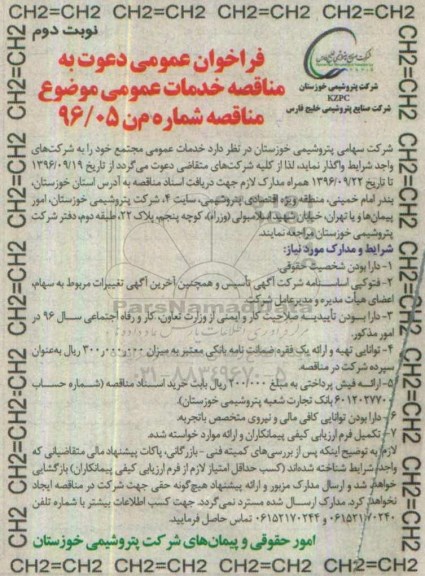 CH2=CH2 CH2=CH2 CH2=CH2 CH2=CH2 CH2=CH2
نوبت دوم
فراخوان عمومی دعوت به
مناقصه خدمات عمومی موضوع
مناقصه شماره م‌ن ۹۶/۰۵
شرکت پتروشیمی خوزستان
KZPC
شرکت صنایع پتروشیمی خلیج فارس
شرکت سهامی پتروشیمی خوزستان در نظر دارد خدمات عمومی مجتمع خود را به شرکت‌های
واجد شرایط واگذار نماید، لذا از کلیه شرکت‌های متقاضی دعوت می‌گردد از تاریخ ۱۳۹۶/۰۹/۱۹
تا تاریخ ۱۳۹۶/۰۹/۲۲ همراه مدارک لازم جهت دریافت اسناد مناقصه به آدرس استان خوزستان،
بندر امام خمینی، منطقه ویژه اقتصادی پتروشیمی، سایت ۴، شرکت پتروشیمی خوزستان، امور
پیمان‌ها و یا تهران، خیابان شهید اسلامبولی (وزراء)، کوچه پنجم، پلاک ۲۲، طبقه دوم، دفتر شرکت
پتروشیمی خوزستان مراجعه نمایند.
شرایط و مدارک مورد نیاز:
۱- دارا بودن شخصیت حقوقی.
۲- فتوکپی اساسنامه شرکت آگهی تأسیس و همچنین آخرین آگهی تغییرات مربوط به سهام،
اعضای هیأت مدیره و مدیرعامل شرکت.
۳- دارا بودن تأییدیه صلاحیت کار و ایمنی از وزارت تعاون، کار و رفاه اجتماعی سال ۹۶ در
امور مذکور.
۴- توانایی تهیه و ارائه یک فقره ضمانت نامه بانکی معتبر به میزان ۳۰۰,۰۰۰,۰۰۰ ریال به‌عنوان
سپرده شرکت در مناقصه.
۵- ارائه فیش پرداختی به مبلغ ۲۰۰/۰۰۰ ریال بابت خرید اسناد مناقصه (شماره حساب
۶۰۱۲۰۲۷۷۰ بانک تجارت شعبه پتروشیمی خوزستان).
۶- دارا بودن توانایی کافی مالی و نیروی متخصص باتجربه.
۷- تکمیل فرم ارزیابی کیفی پیمانکاران و ارائه موارد خواسته شده.
لازم به توضیح اینکه پس از بررسی‌های کمیته فنی - بازرگانی، پاکات پیشنهاد مالی متقاضیانی که
واجد شرایط شناخته شده‌اند (کسب حداقل امتیاز لازم از فرم ارزیابی کیفی پیمانکاران) بازگشایی
خواهد شد و ارسال مدارک مزبور و ارائه پیشنهاد هیچ‌گونه حقی جهت شرکت در مناقصه ایجاد
نخواهد کرد. مدارک ارسال شده مسترد نمی‌گردد. جهت کسب اطلاعات بیشتر با شماره تلفن
۰۶۱۵۲۱۷۰۲۴۰ و ۰۶۱۵۲۱۷۰۲۴۴ تماس حاصل فرمایید.
امور حقوقی و پیمان‌های شرکت پتروشیمی خوزستان
CH2=CH2 CH2=CH2 CH2=CH2 CH2=CH2 CH2=CH2
ParsNamadData
۰۲۱-۸۸۳۴۹۶۷۰-۵